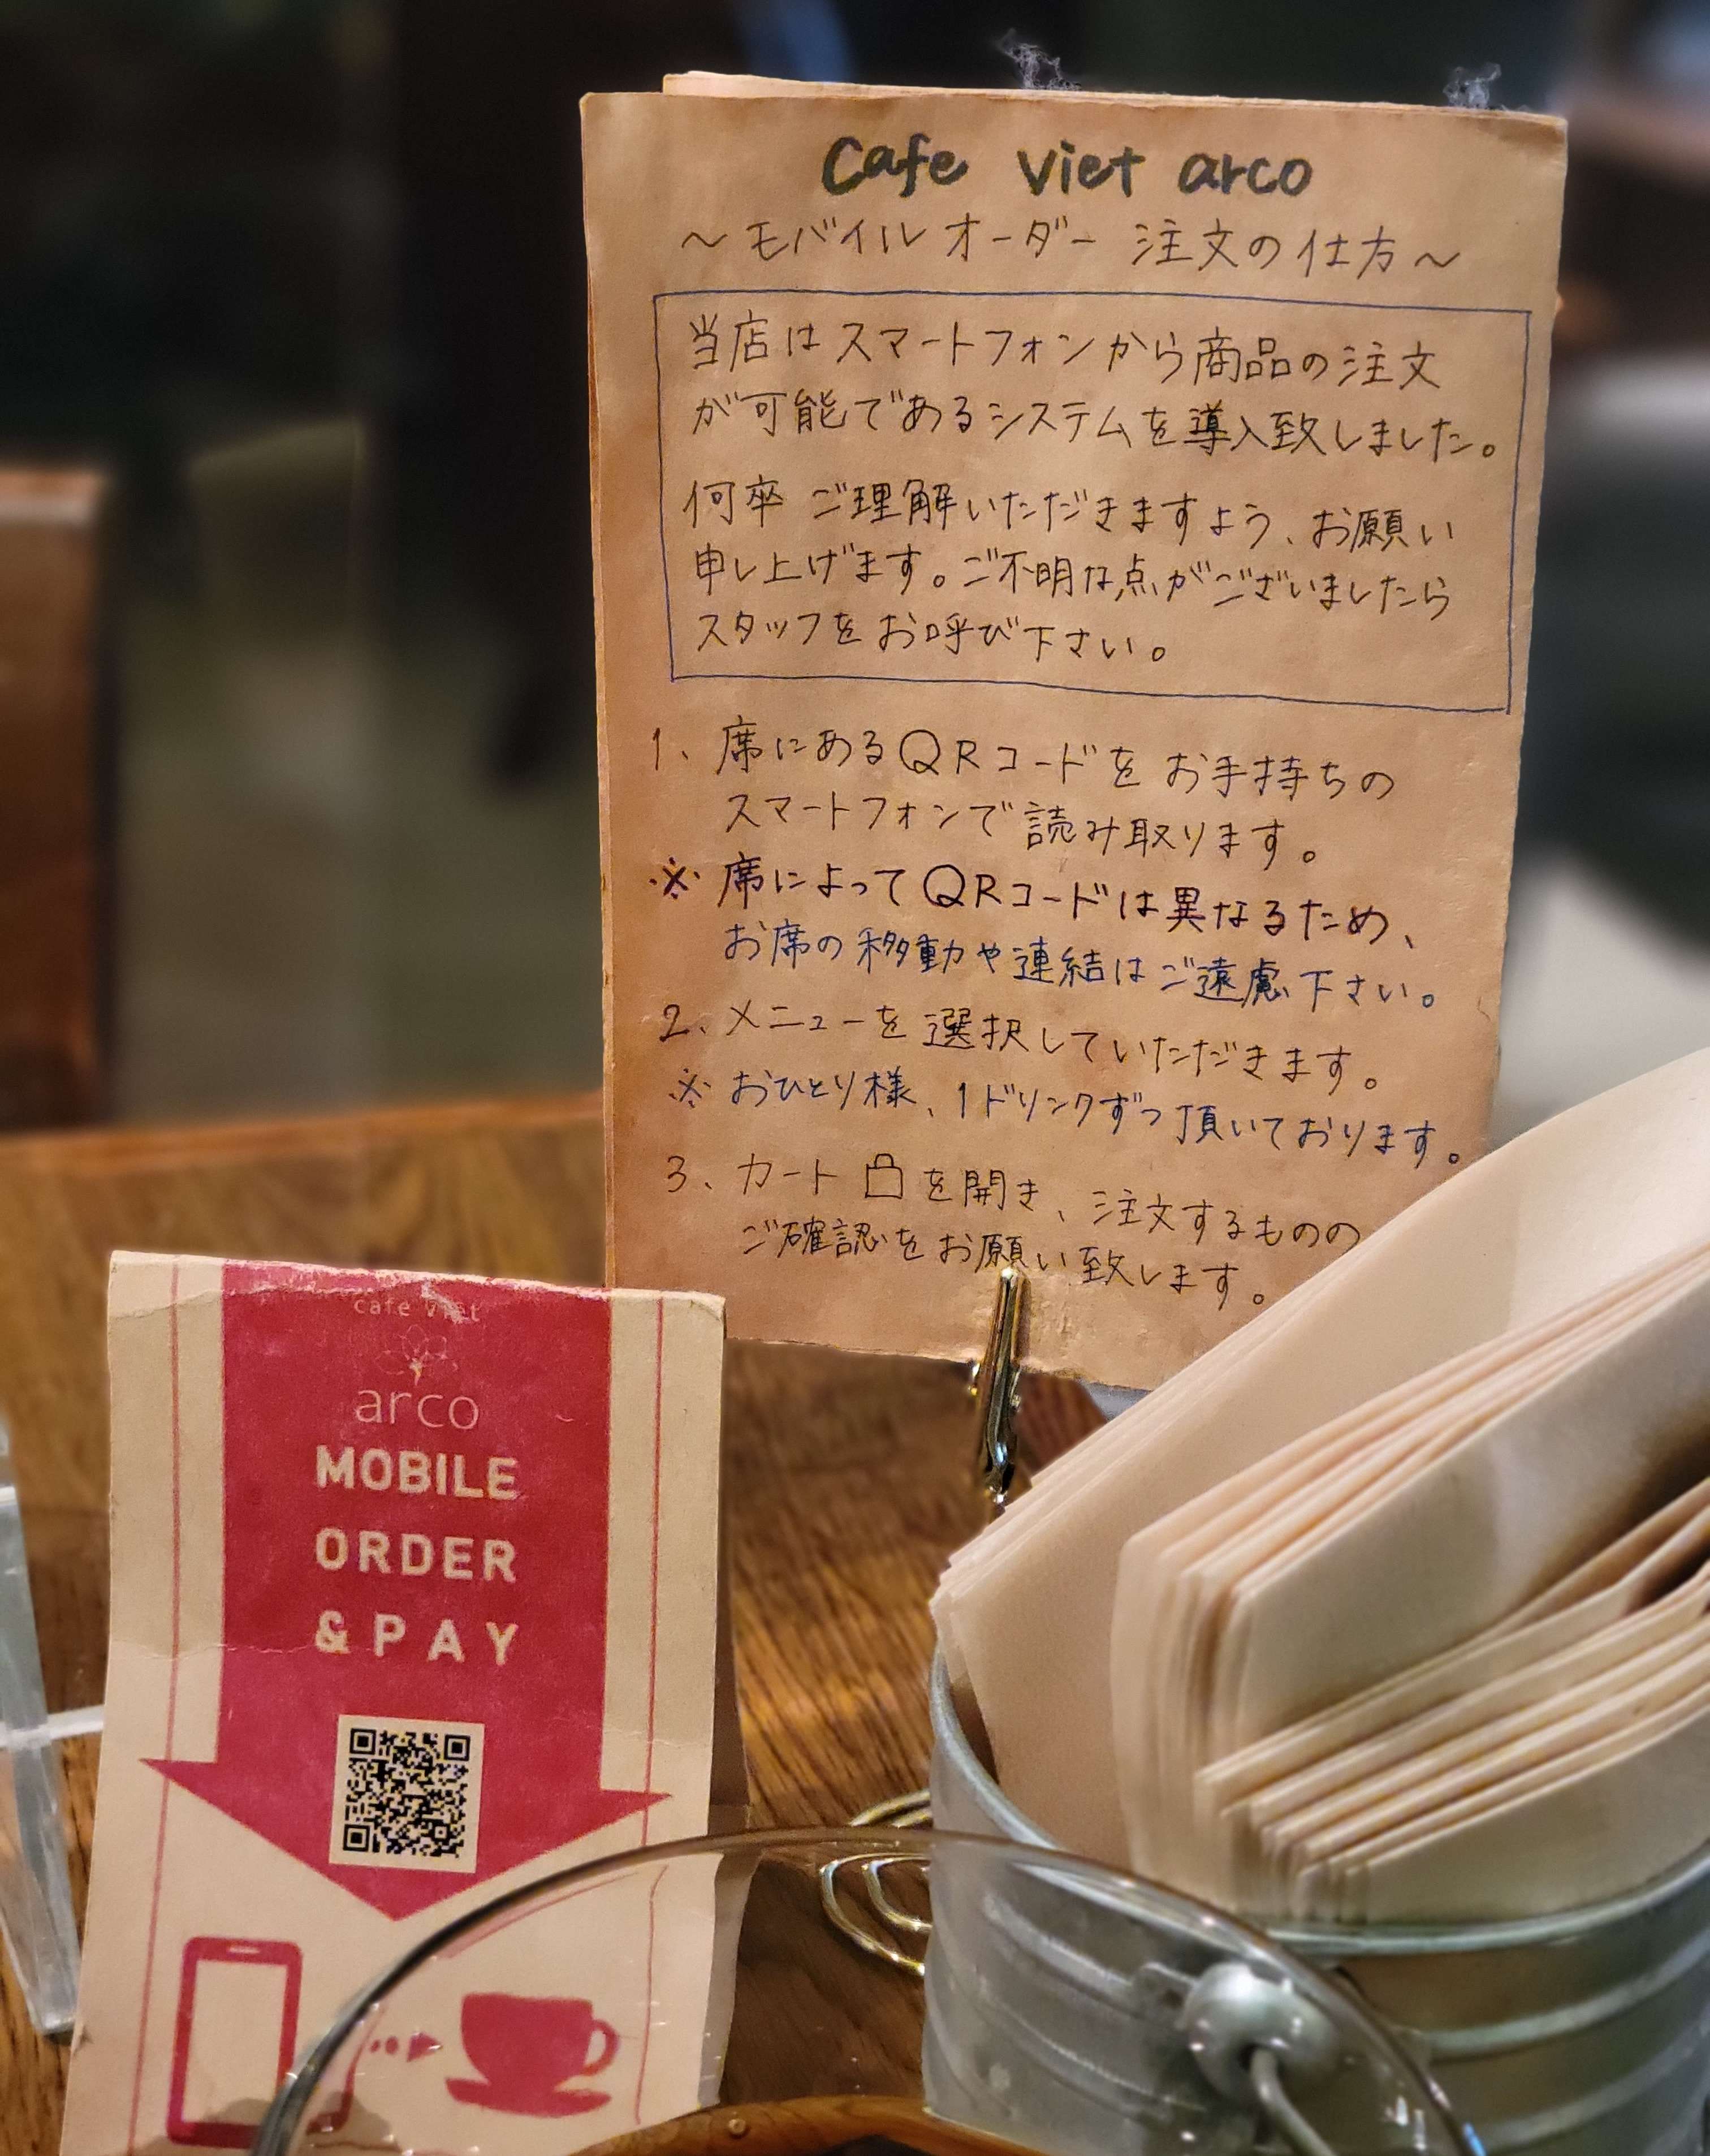 Cafe viet arco
～モバイルオーダー 注文の仕方～
当店はスマートフォンから商品の注文
が可能であるシステムを導入致しました。
何卒 ご理解いただきますよう、お願い
申し上げます。ご不明な点がございましたら
スタッフをお呼び下さい。
1、席にあるQRコードをお手持ちの
スマートフォンで読み取ります。
※ 席によってQRコードは異なるため、
お席の移動や連結はご遠慮下さい。
2、メニューを選択していただきます。
※ おひとり様、1ドリンクずつ頂いております。
3、カート を開き、注文するものの
ご確認をお願い致します。
cafe viet
arco
MOBILE
ORDER
&PAY